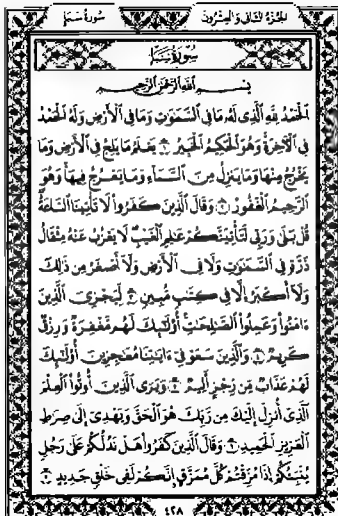 الجزء الثاني والعشرون سورة سبإ
سورة سبإ
بسم الله الرحمن الرحيم
الْحَمْدُ لِلَّهِ الَّذِي لَهُ مَا فِي السَّمَٰوَٰتِ وَمَا فِي الْأَرْضِ وَلَهُ الْحَمْدُ
فِي الْآخِرَةِ وَهُوَ الْحَكِيمُ الْخَبِيرُ ١ يَعْلَمُ مَا يَلِجُ فِي الْأَرْضِ وَمَا
يَخْرُجُ مِنْهَا وَمَا يَنزِلُ مِنَ السَّمَاءِ وَمَا يَعْرُجُ فِيهَا وَهُوَ
الرَّحِيمُ الْغَفُورُ ٢ وَقَالَ الَّذِينَ كَفَرُوا لَا تَأْتِينَا السَّاعَةُ
قُلْ بَلَىٰ وَرَبِّي لَتَأْتِيَنَّكُمْ عَٰلِمِ الْغَيْبِ لَا يَعْزُبُ عَنْهُ مِثْقَالُ
ذَرَّةٍ فِي السَّمَٰوَٰتِ وَلَا فِي الْأَرْضِ وَلَا أَصْغَرُ مِن ذَٰلِكَ
وَلَا أَكْبَرُ إِلَّا فِي كِتَٰبٍ مُّبِينٍ ٣ لِّيَجْزِيَ الَّذِينَ
ءَامَنُوا وَعَمِلُوا الصَّٰلِحَٰتِ أُولَٰئِكَ لَهُم مَّغْفِرَةٌ وَرِزْقٌ
كَرِيمٌ ٤ وَالَّذِينَ سَعَوْ فِي ءَايَٰتِنَا مُعَٰجِزِينَ أُولَٰئِكَ
لَهُمْ عَذَابٌ مِّن رِّجْزٍ أَلِيمٌ ٥ وَيَرَى الَّذِينَ أُوتُوا الْعِلْمَ
الَّذِي أُنزِلَ إِلَيْكَ مِن رَّبِّكَ هُوَ الْحَقَّ وَيَهْدِي إِلَىٰ صِرَٰطِ
الْعَزِيزِ الْحَمِيدِ ٦ وَقَالَ الَّذِينَ كَفَرُوا هَلْ نَدُلُّكُمْ عَلَىٰ رَجُلٍ
يُنَبِّئُكُمْ إِذَا مُزِّقْتُمْ كُلَّ مُمَزَّقٍ إِنَّكُمْ لَفِي خَلْقٍ جَدِيدٍ ٧
٤٢٨